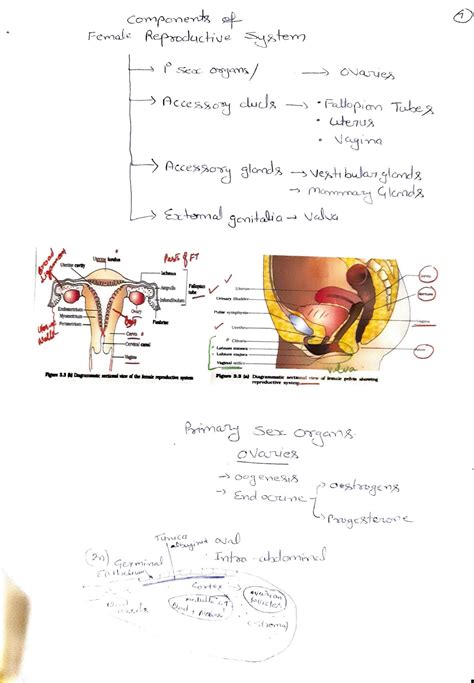 1
Components of
Female Reproductive System
1° sex organs/ → ovaries
Accessory ducts → • Fallopian Tubes
• Uterus
• Vagina
Accessory glands → Vestibular glands
→ Mammary Glands
External genitalia → Valva
Broad
ligament
Uterine fundus
Uterine cavity
Parts of FT
Isthmus
Ampulla
Infundibulum
Fallopian
tube
Endometrium
Myometrium
Perimetrium
Ovary
Fimbriae
Cervix
Cervical canal
Vagina
Figure 3.3 (b) Diagrammatic sectional view of the female reproductive system
Uterus
Urinary Bladder
Pubic symphysis
Urethra
Clitoris
Labium minora
Labium majora
Vaginal orifice
valva
Figure 3.3 (a) Diagrammatic sectional view of female pelvis showing
reproductive system
Primary Sex Organs
Ovaries
→ oogenesis
→ Endocrine
→ oestrogens
→ Progesterone
Tunica
Albuginea
oval
Intra-abdominal
(2n) Germinal
Epithelium
Cortex →
ovarian
follicles
medulla
(stroma)